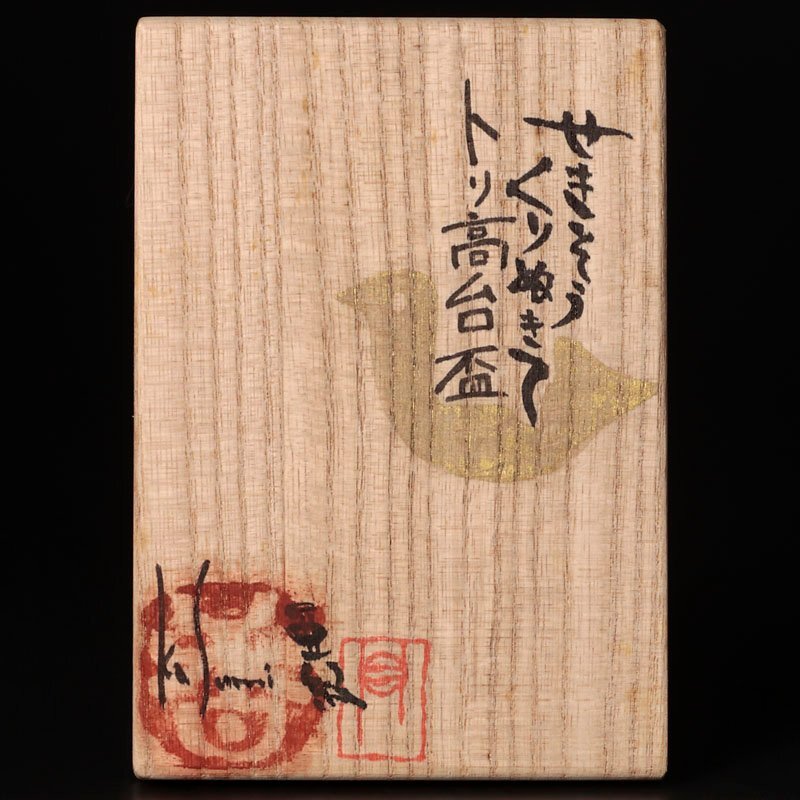 せきそう
くりぬきて
トリ高台盃
Kasumi